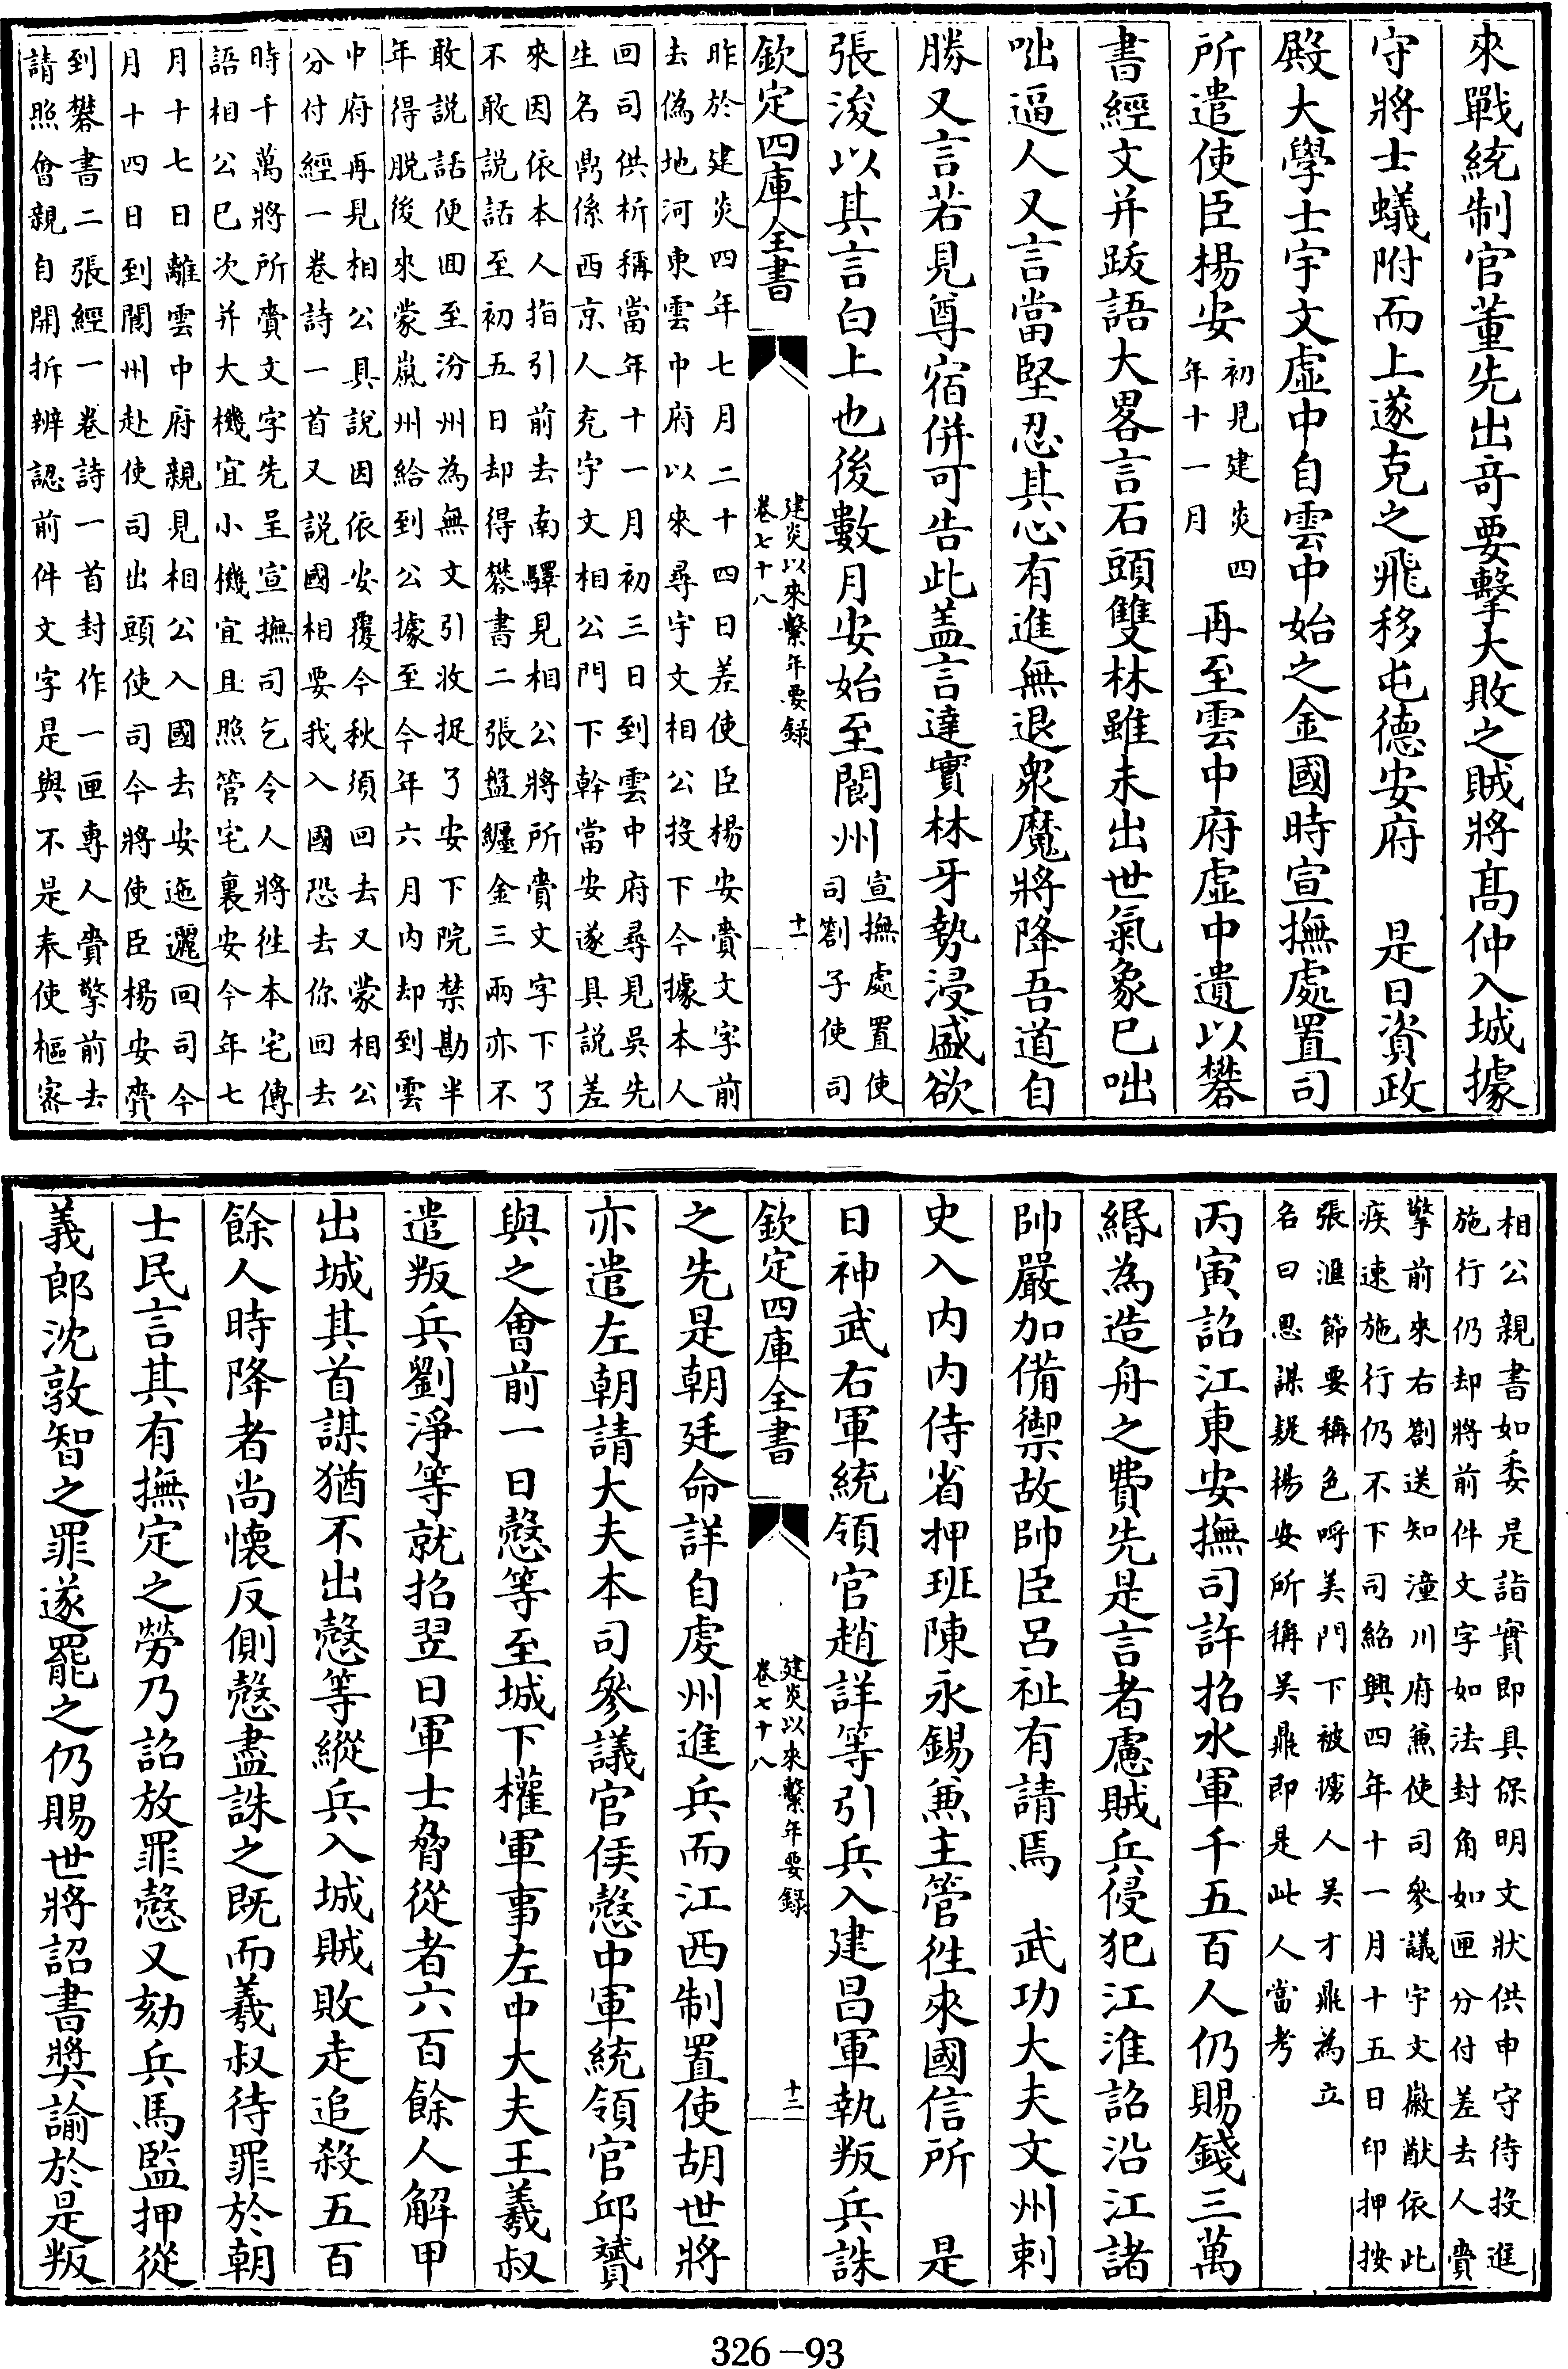 來戰統制官董先出竒要擊大敗之賊將髙仲入城據
守將士蟻附而上遂克之飛移屯德安府　是日資政
殿大學士宇文虛中自雲中始之金國時宣撫處置司
所遣使臣楊安初見建炎四年十一月再至雲中府虛中遺以礬
書經文并䟦語大畧言石頭雙林雖未出世氣象已咄
咄逼人又言當堅忍其心有進無退衆魔將降吾道自
勝又言若見尊宿併可告此盖言達實林牙勢浸盛欲
張浚以其言白上也後數月安始至閬州宣撫處置使司劄子使司
欽定四庫全書
建炎以來繫年要録
卷七十八
十二
昨於建炎四年七月二十四日差使臣楊安賫文字前
去偽地河東雲中府以來尋宇文相公投下今據本人
回司供析稱當年十一月初三日到雲中府尋見吳先
生名鼎係西京人充宇文相公門下幹當安遂具説差
來因依本人指引前去南驛見相公將所賫文字下了
不敢説話至初五日却得礬書二張盤纒金三兩亦不
敢説話便回至汾州為無文引收捉了安下院禁勘半
年得脱後來蒙嵐州給到公據至今年六月内却到雲
中府再見相公具說因依安覆今秋須回去又蒙相公
分付經一卷詩一首又説國相要我入國恐去你回去
時千萬將所賫文字先呈宣撫司乞令人將徃本宅傳
語相公已次并大機宜小機宜且照管宅裏安今年七
月十七日離雲中府親見相公入國去安迤邐回司今
月十四日到閬州赴使司出頭使司今將使臣楊安賫
到礬書二張經一卷詩一首封作一匣專人賫擎前去
請照會親自開拆辨認前件文字是與不是是奉使樞密
相公親書如委是詣實即具保明文狀供申守待投進
施行仍却將前件文字如法封角如匣分付差去人賫
擎前來右劄送知潼川府兼使司參議宇文巌猷依此
疾速施行仍不下司紹興四年十一月十五日印押按
張滙節要稱色呼美門下被擄人吴才鼎為立
名曰思謀疑楊安所稱吴鼎即是此人當考
丙寅詔江東安撫司許招水軍千五百人仍賜錢三萬
緡為造舟之費先是言者慮賊兵侵犯江淮詔沿江諸
帥嚴加備禦故帥臣吕祉有請焉　武功大夫文州刺
史入内内侍省押班陳永錫兼主管徃來國信所　是
日神武右軍統領官趙詳等引兵入建昌軍執叛兵誅
欽定四庫全書
建炎以來繫年要録
卷七十八
十三
之先是朝廷命詳自䖍州進兵而江西制置使胡世將
亦遣左朝請大夫本司參議官侯慤中軍統領官邱贇
與之會前一日慤等至城下權軍事左中大夫王羲叔
遣叛兵劉淨等就招翌日軍士脅從者六百餘人解甲
出城其首謀猶不出慤等縱兵入城賊敗走追殺五百
餘人時降者尚懷反側慤盡誅之既而羲叔待罪於朝
士民言其有撫定之勞乃詔放罪慤又劾兵馬監押從
義郎沈敦智之罪遂罷之仍賜世將詔書奬諭於是叛
326-93